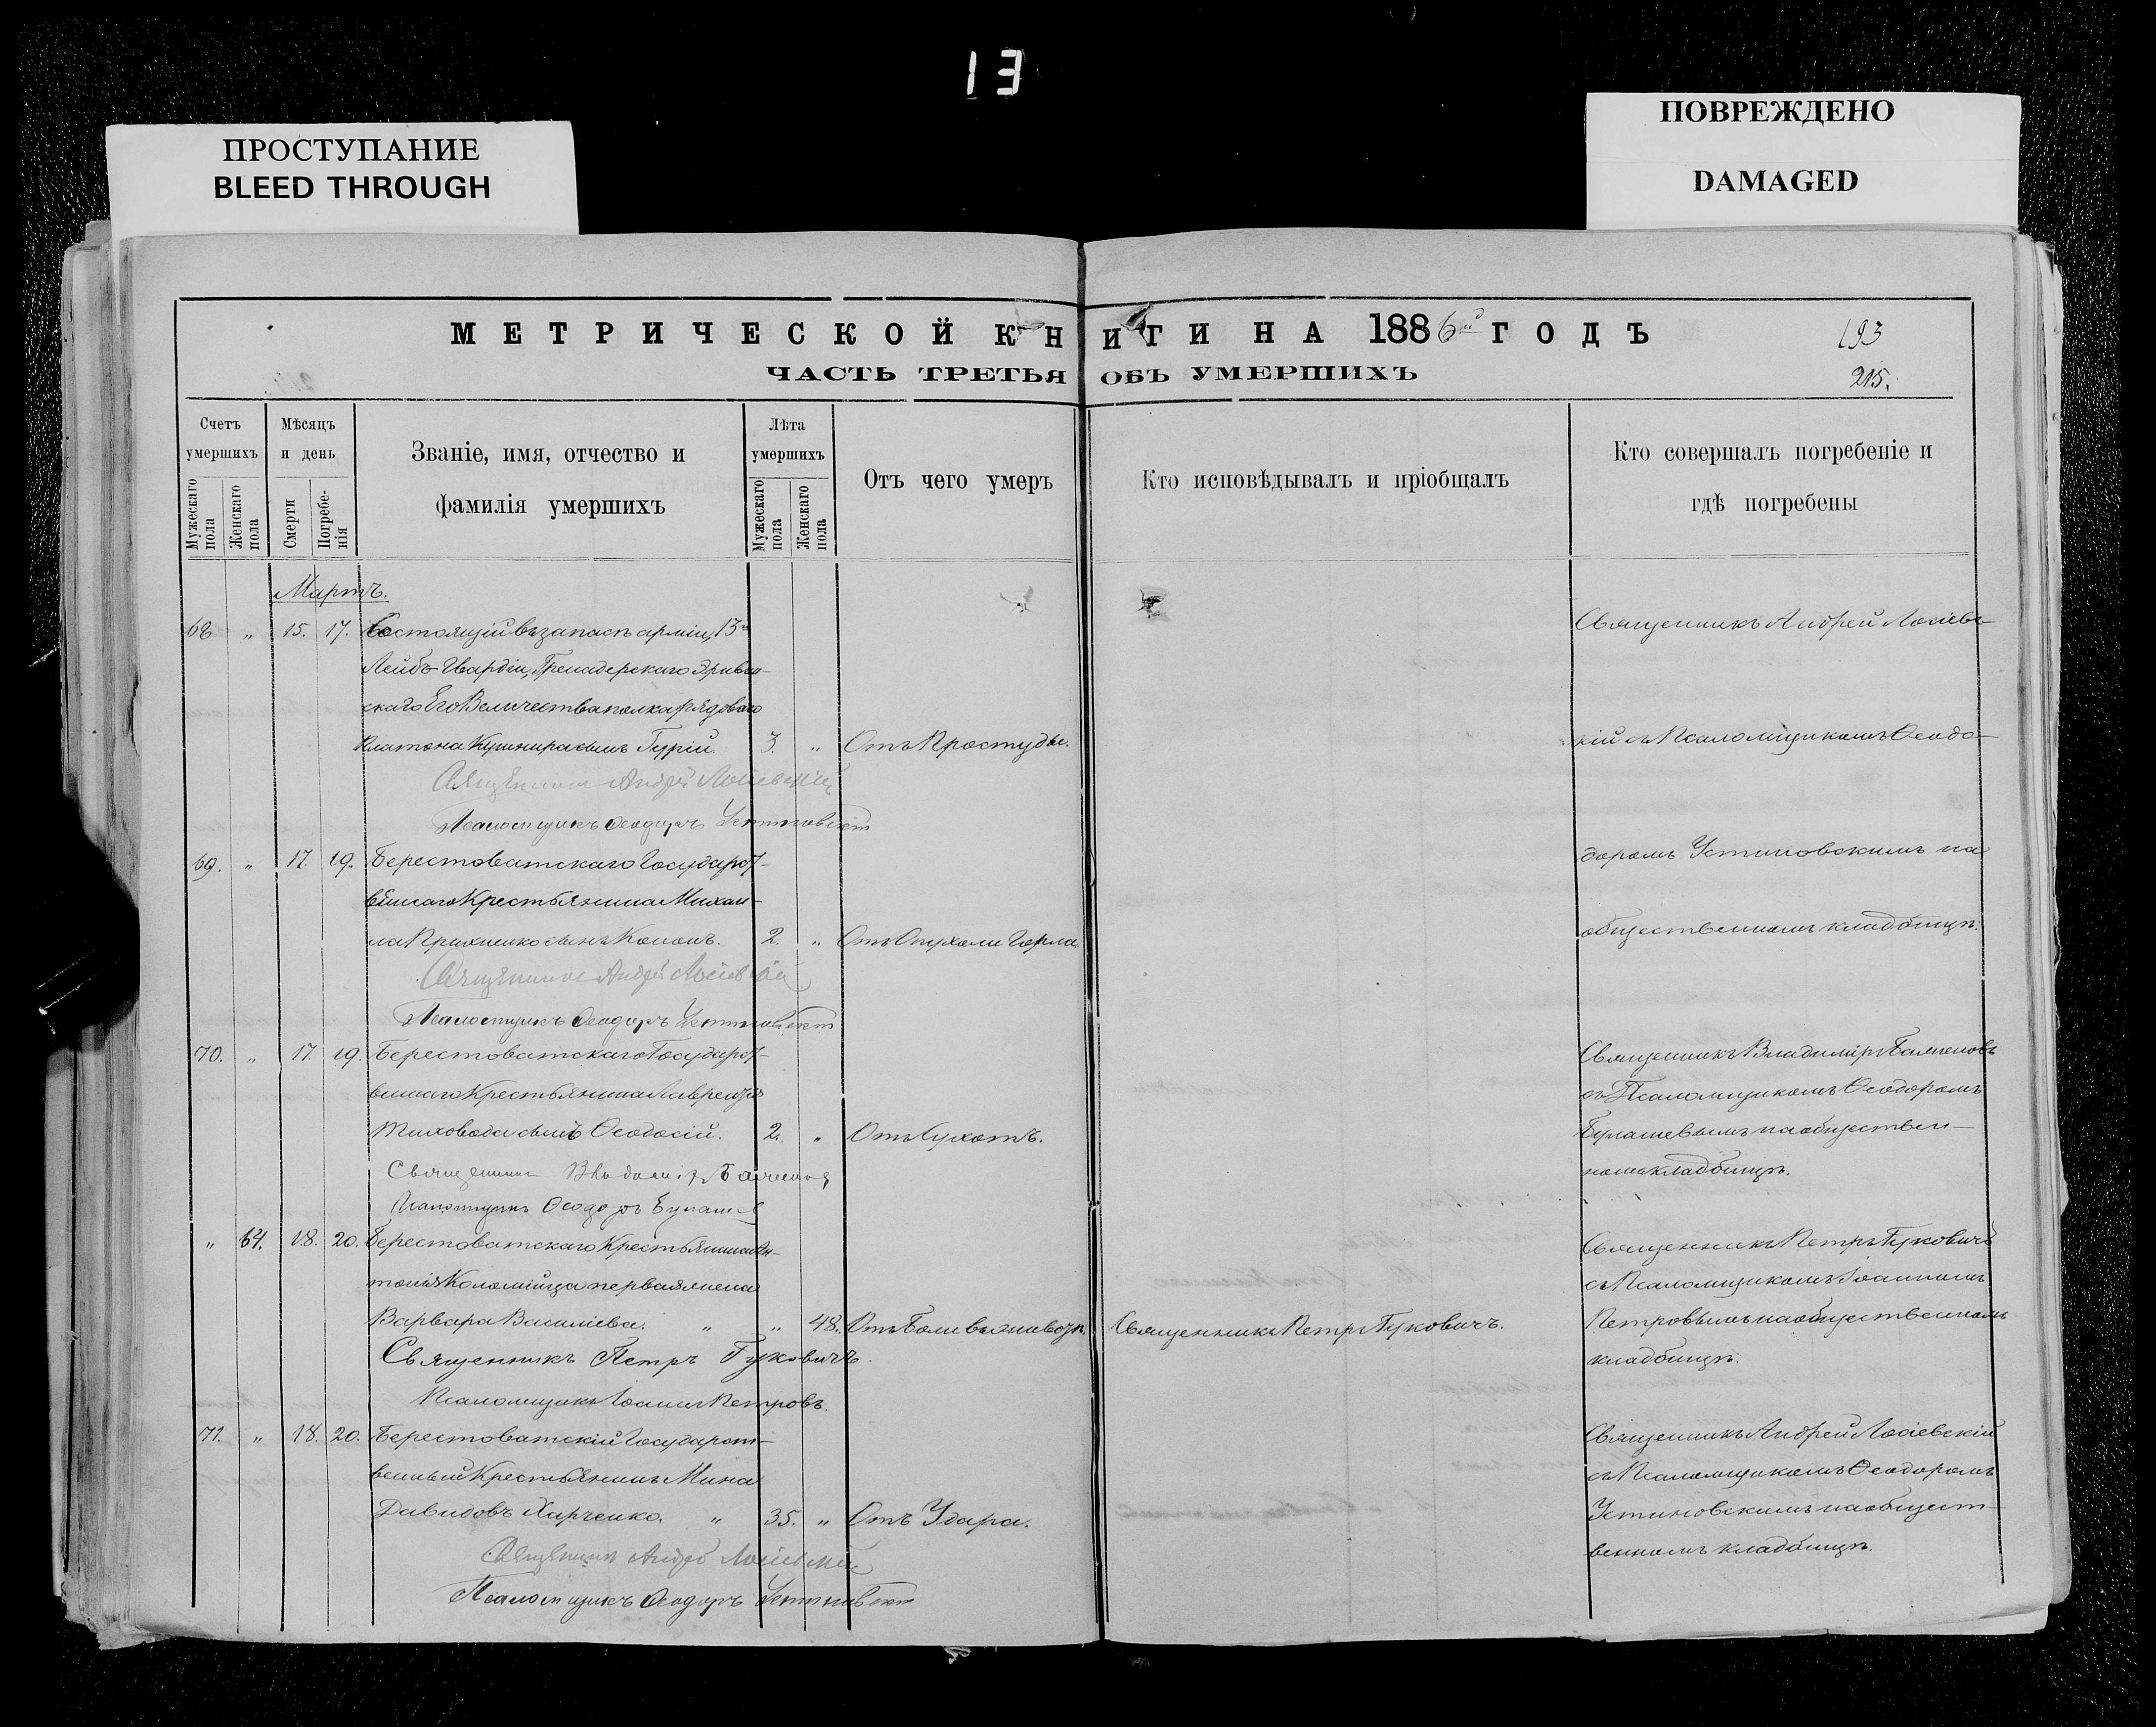 13
ПРОСТУПАНИЕ
BLEED THROUGH
ПОВРЕЖДЕНО
DAMAGED
МЕТРИЧЕСКОЙ КНИГИ НА 1886й ГОДЪ
193
ЧАСТЬ ТРЕТЬЯ ОБЪ УМЕРШИХЪ
215.
Счетъ умершихъ
Мужескаго пола
Женскаго пола
Мѣсяцъ и день
Смерти
Погребе-
нія
Званіе, имя, отчество и
фамилія умершихъ
Лѣта умершихъ
Мужескаго пола
Женскаго пола
Отъ чего умеръ
Кто исповѣдывалъ и пріобщалъ
Кто совершалъ погребеніе и
гдѣ погребены
Мартъ.
68 " 15. 17. Состоящій въ запасѣ арміи, 13го
Лейбъ-Гвардіи, Гренадерскаго Эриван-
скаго Его Величества полка рядоваго
Платона Кушнира сынъ Гурій. 3. " Отъ Простуды.
Священникъ Андрей Лосіевскій
Псаломщикъ Ѳеодоръ Устиновскій
Священникъ Андрей Лосіевс-
кій съ Псаломщикомъ Ѳеодо-
доромъ Устиновскимъ на
общественномъ кладбищѣ.
69. " 17. 19. Берестоватскаго Государст-
веннаго Крестьянина Михаи-
ла Прихненко сынъ Кононъ. 2. " Отъ Опухоли Горла.
Священникъ Андрей Лосіевскій
Псаломщикъ Ѳеодоръ Устиновскій
70. " 17. 19. Берестоватскаго Государст-
веннаго Крестьянина Лаврентія
Тиховода сынъ Ѳеодосій. 2. " Отъ Сухотъ.
Священникъ Владиміръ
Псаломщикъ Ѳеодоръ Булашевъ
Священникъ Владиміръ
съ Псаломщикомъ Ѳеодоромъ
Булашевымъ на обществен-
номъ кладбищѣ.
" 64. 18. 20. Берестоватскаго Крестьянина Ан-
тонія Коломійца первая жена
Варвара Василіева. " " 48. Отъ Боли въ животѣ. Священникъ Петръ Гуковичъ.
Священникъ Петръ Гуковичъ.
Псаломщикъ Іоаннъ Петровъ.
Священникъ Петръ Гуковичъ
съ Псаломщикомъ Іоанномъ
Петровымъ на общественномъ
кладбищѣ.
71. " 18. 20. Берестоватскій Государст-
венный Крестьянинъ Мина
Давидовъ Харченко. " 35. " Отъ Удара.
Священникъ Андрей Лосіевскій
Псаломщикъ Ѳеодоръ Устиновскій
Священникъ Андрей Лосіевскій
съ Псаломщикомъ Ѳеодоромъ
Устиновскимъ на общест-
венномъ кладбищѣ.